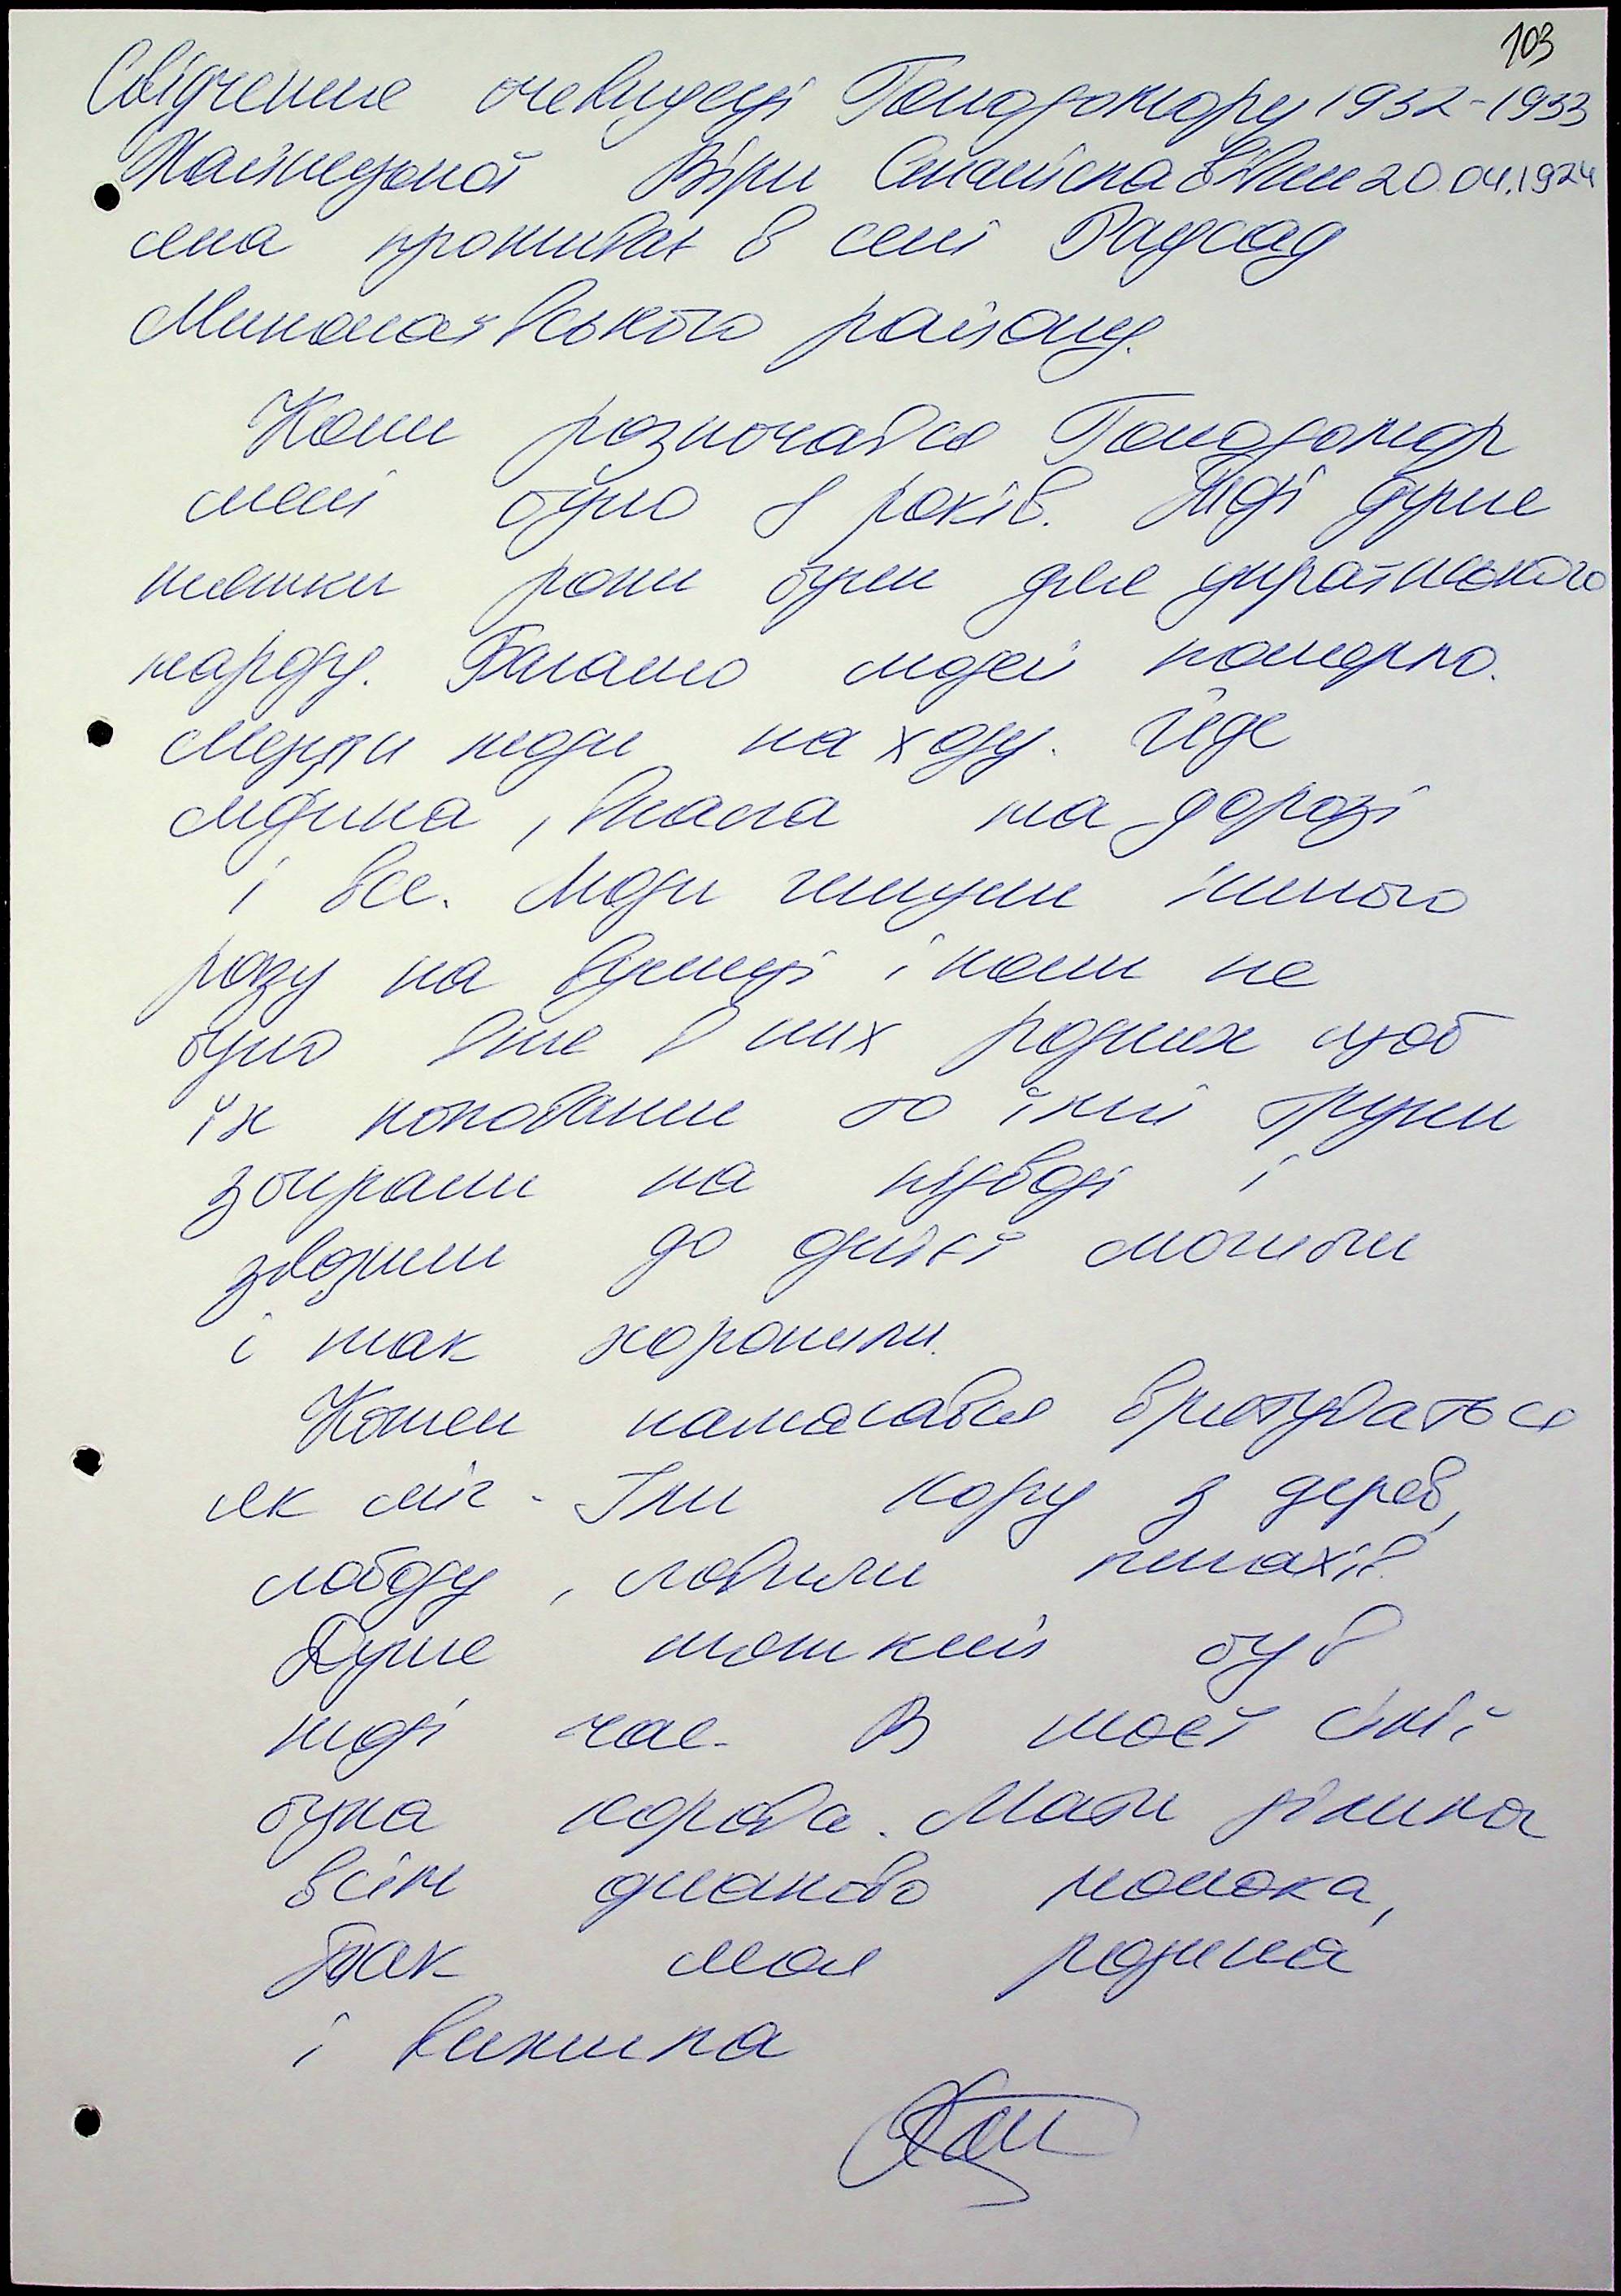 103
Свідчення очевидеці Голодомору 1932-1933
Віри 20.04.1924
яка проживає в селі Радсад
Миколаївського району.
Коли розпочався Голодомор
мені було 8 років. Тоді дуже
тяжки роки були для українського
народу. Багато людей померло.
Мерли люди на ходу. Йде
людина, впала на дорозі
і все. Люди гинули іншого
разу на вулиці і коли не
було вже в них родних щоб
їх поховали то їхні трупи
збирали на підводі і
звозили до однієї могили
і так хоронили.
Кожен намагався врятуваться
як міг. Їли кору з дерев,
лободу, ловили птахів.
Дуже тяжкий був
тоді час. В моєї сім'ї
була корова. Мати ділила
всім однаково молока,
Так моя родина
і вижила